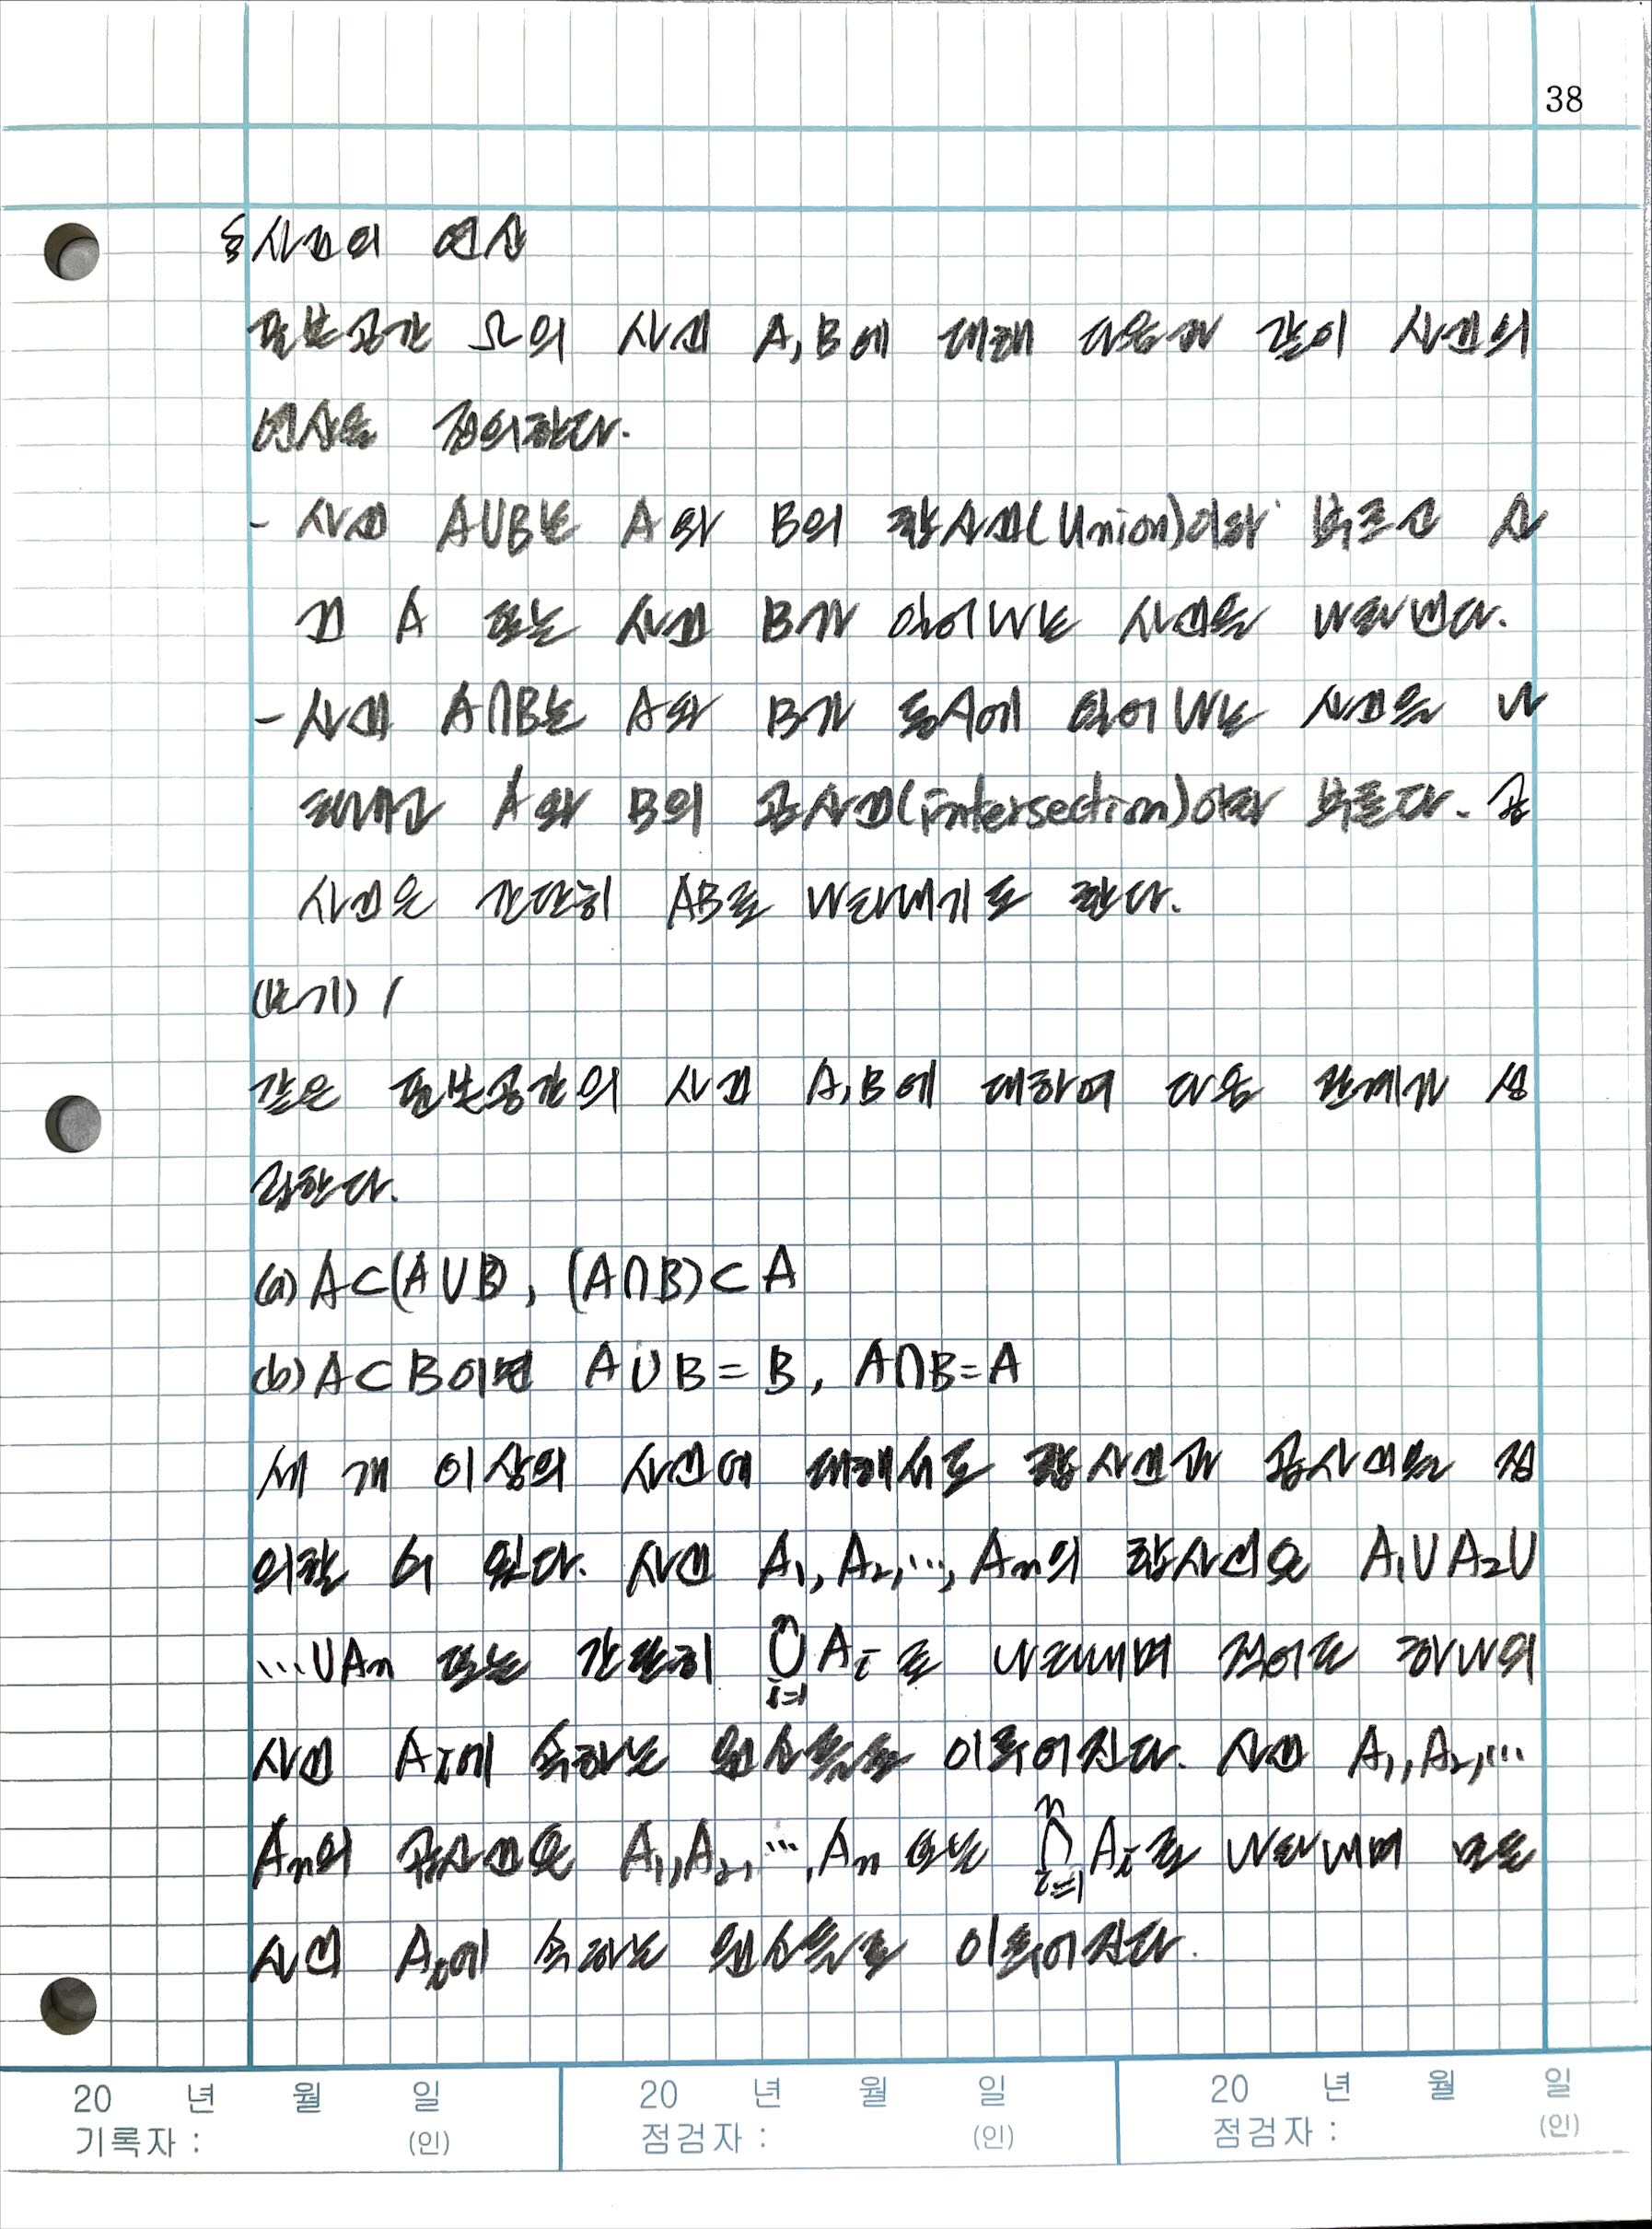 38
§사건의 연산
표본공간 Ω의 사건 A,B에 대해 다음과 같이 사건의
연산을 정의한다.
- 사건 A∪B는 A와 B의 합사건(Union)이라 부르고 사
건 A 또는 사건 B가 일어나는 사건을 나타낸다.
- 사건 A∩B는 A와 B가 동시에 일어나는 사건을 나
타내고 A와 B의 곱사건(intersection)이라 부른다. 곱
사건은 간단히 AB로 나타내기도 한다.
(보기) 1
같은 표본공간의 사건 A,B에 대하여 다음 관계가 성
립한다.
(a) A⊂(A∪B), (A∩B)⊂A
(b) A⊂B이면 A∪B=B, A∩B=A
세 개 이상의 사건에 대해서도 합사건과 곱사건을 정
의할 수 있다. 사건 A₁, A₂, ⋯, Aₙ의 합사건은 A₁∪A₂∪
⋯∪Aₙ 또는 간단히 ⋃ⁿᵢ₌₁Aᵢ로 나타내며 적어도 하나의
사건 Aᵢ에 속하는 원소들로 이루어진다. 사건 A₁, A₂, ⋯
Aₙ의 곱사건은 A₁, A₂, ⋯, Aₙ 또는 ⋂ⁿᵢ₌₁Aᵢ로 나타내며 모든
사건 Aᵢ에 속하는 원소들로 이루어진다.
20 년 월 일 20 년 월 일 20 년 월 일
기록자 : (인) 점검자 : (인) 점검자 : (인)